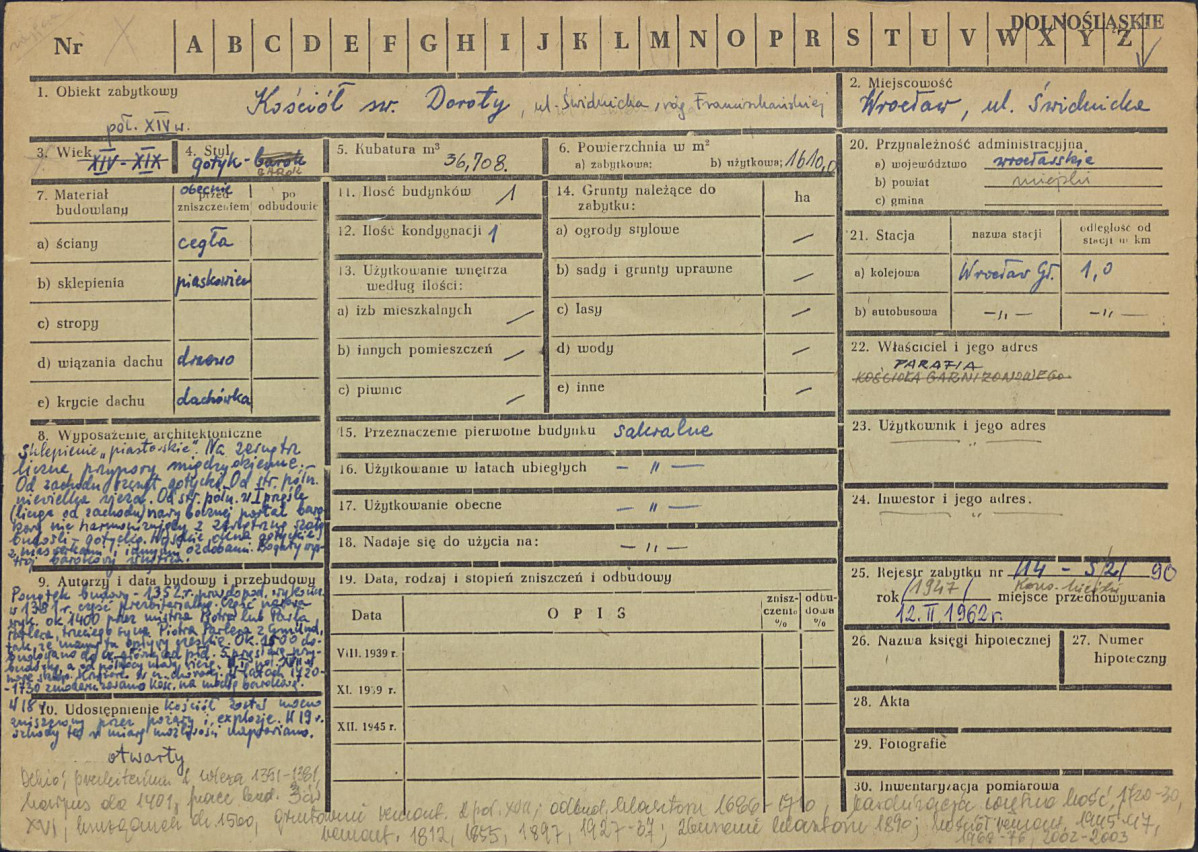 DOLNOŚLĄSKIE
Nr A B C D E F G H I J K L M N O P R S T U V W X Y Z
1. Obiekt zabytkowy
Kościół św. Doroty, ul. Świdnicka, róg Franciszkańskiej
2. Miejscowość
Wrocław, ul. Świdnicka
poł. XIV w.
3. Wiek XIV - XIX
4. Styl gotyk - barok
BAROK
5. Kubatura m³
36,708.
6. Powierzchnia w m²
a) zabytkowa: b) użytkowa: 1610,0
7. Materiał budowlany
obecnie
przed zniszczeniem
po odbudowie
a) ściany cegła
b) sklepienia piaskowiec
c) stropy
d) wiązania dachu drzewo
e) krycie dachu dachówka
8. Wyposażenie architektoniczne
Sklepienie „piastowskie". Na zewnątrz
liczne przypory międzyokienne.
Od zachodu szczyt gotycki. Od str. półn.
niewielka wieża. Od str. półn. w I przęśle
(licząc od zachodu) nawy bocznej portal baro-
kowy nie harmonizujący z zewnętrzną szatą
budowli - gotycką. Wysokie okna gotyckie
z maswerkami i innymi ozdobami. Bogaty wys-
trój barokowy wnętrza.
9. Autorzy i data budowy i przebudowy
Początek budowy - 1352 r. prawdopod. wykończ.
w 1381 r. część prezbiterialna. Część nawowa
wyk. ok. 1400 przez mistrza Piotra lub
Parlera, trzeciego syna Piotra Parlera z Gmünd,
Ok. 1500 do-
budowano
W latach 1720-
-1730 zmodernizowano kośc. na modłę barokową.
W 18 Kościół został mocno
zniszczony przez pożary i eksplozje. W 19 r.
szkody te w miarę możliwości naprawiano.
10. Udostępnienie
otwarty
11. Ilość budynków 1
12. Ilość kondygnacji 1
13. Użytkowanie wnętrza według ilości:
a) izb mieszkalnych —
b) innych pomieszczeń —
c) piwnic —
14. Grunty należące do zabytku: ha
a) ogrody stylowe —
b) sady i grunty uprawne —
c) lasy —
d) wody —
e) inne —
15. Przeznaczenie pierwotne budynku sakralne
16. Użytkowanie w latach ubiegłych — " —
17. Użytkowanie obecne — " —
18. Nadaje się do użycia na: — " —
19. Data, rodzaj i stopień zniszczeń i odbudowy
Data OPIS zniszczenia % odbudowa %
VIII. 1939 r.
XI. 1939 r.
XII. 1945 r.
20. Przynależność administracyjna
a) województwo wrocławskie
b) powiat miejski
c) gmina
21. Stacja nazwa stacji odległość od stacji w km
a) kolejowa Wrocław Gł. 1,0
b) autobusowa — " — — " —
22. Właściciel i jego adres
PARAFIA
KOŚCIOŁA GARNIZONOWEGO
23. Użytkownik i jego adres
— " —
24. Inwestor i jego adres.
— " —
25. Rejestr zabytku nr 114 - 521 90
rok /1947/ miejsce przechowywania Kons. Miejski
12. II 1962 r.
26. Nazwa księgi hipotecznej
27. Numer hipoteczny
28. Akta
29. Fotografie
30. Inwentaryzacja pomiarowa
Dehio; prezbiterium i wieża 1351-1381,
korpus do 1401, prace bud.
XVI, ok. 1500, gruntowny remont. 2 poł. XVII; odbud. klasztoru 1686-1710; barokizacja wnętrza kość. 1720-30
remont. 1812, 1855, 1897, 1927-37; zburzenie klasztoru 1890; kościół remont. 1945-47,
1968-76, 2002-2003